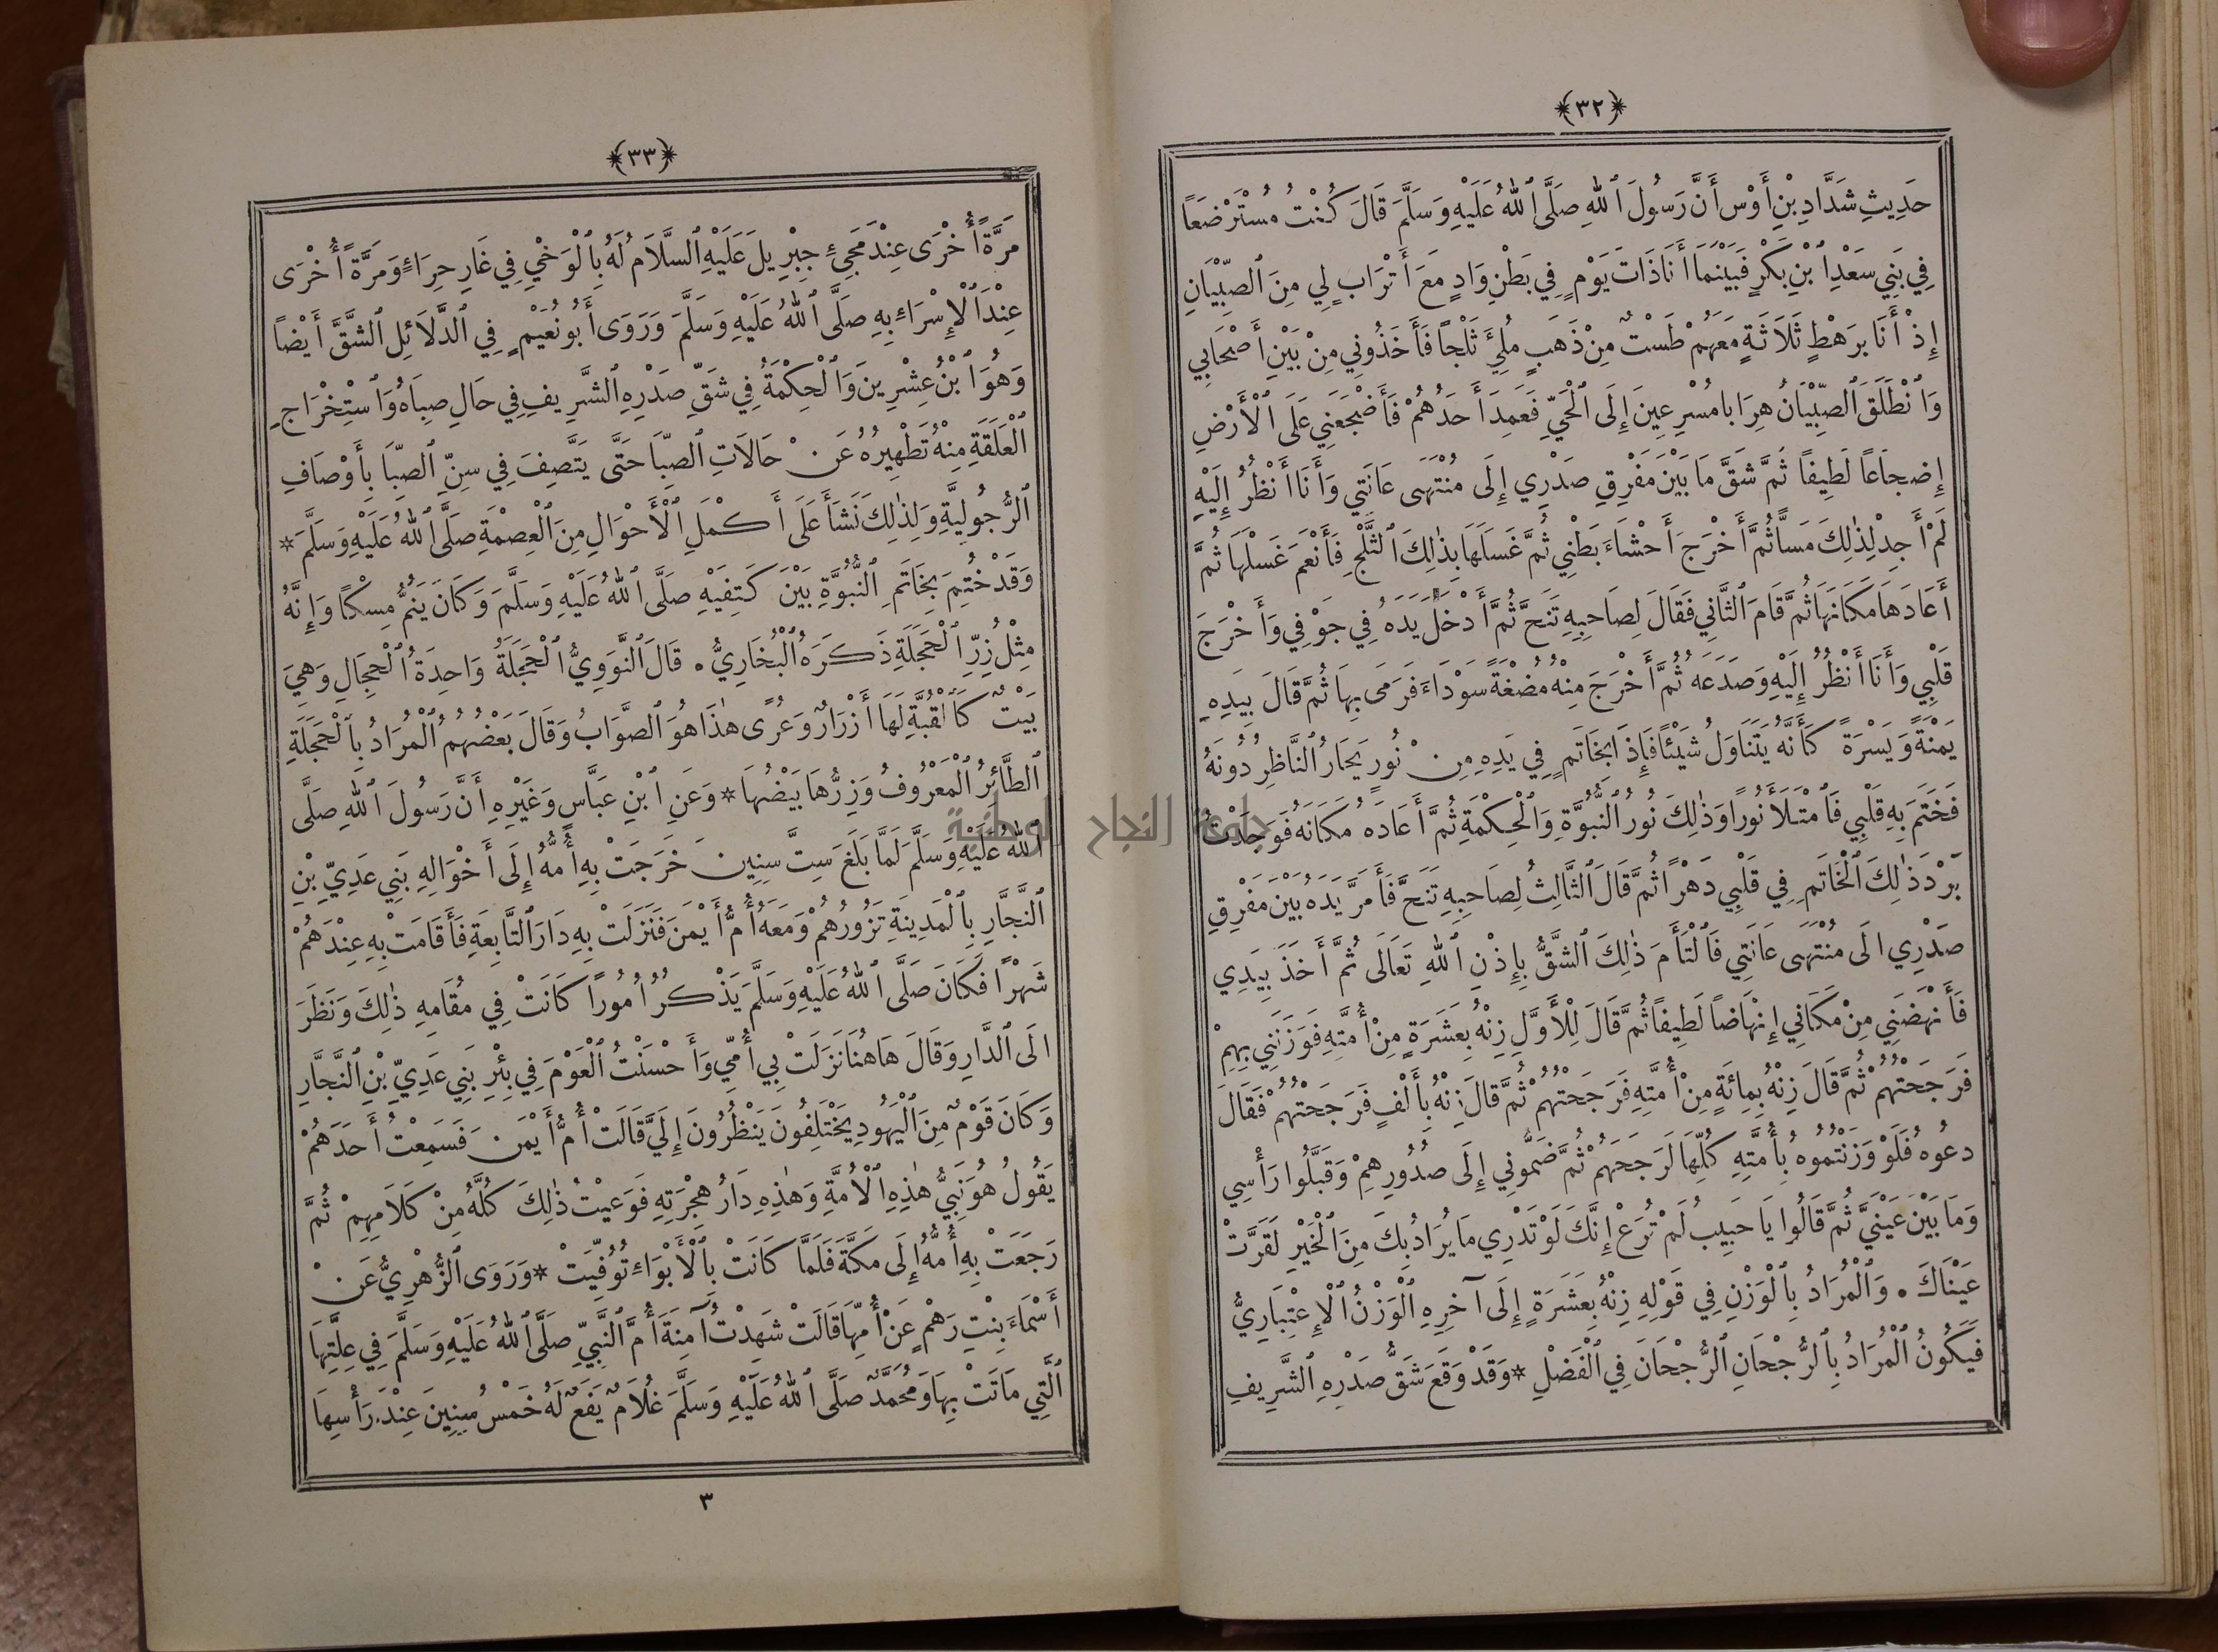 ﴿٣٢﴾
حَدِيثِ شَدَّادِ بْنِ أَوْسٍ أَنَّ رَسُولَ ٱللهِ صَلَّى ٱللهُ عَلَيْهِ وَسَلَّمَ قَالَ كُنْتُ مُسْتَرْضَعًا
فِي بَنِي سَعْدِ ٱبْنِ بَكْرٍ فَبَيْنَمَا أَنَا ذَاتَ يَوْمٍ فِي بَطْنِ وَادٍ مَعَ أَتْرَابٍ لِي مِنَ ٱلصِّبْيَانِ
إِذْ أَنَا بِرَهْطٍ ثَلَاثَةٍ مَعَهُمْ طَسْتٌ مِنْ ذَهَبٍ مُلِئَ ثَلْجًا فَأَخَذُونِي مِنْ بَيْنِ أَصْحَابِي
وَٱنْطَلَقَ ٱلصِّبْيَانُ هِرَابا مُسْرِعِينَ إِلَى ٱلْحَيِّ فَعَمِدَ أَحَدُهُمْ فَأَضْجَعَنِي عَلَى ٱلْأَرْضِ
إِضْجَاعًا لَطِيفًا ثُمَّ شَقَّ مَا بَيْنَ مَفْرِقِ صَدْرِي إِلَى مُنْتَهَى عَانَتِي وَأَنَا أَنْظُرُ إِلَيْهِ
لَمْ أَجِدْ لِذٰلِكَ مَسًّا ثُمَّ أَخْرَجَ أَحْشَاءَ بَطْنِي ثُمَّ غَسَلَهَا بِذٰلِكَ ٱلثَّلْجِ فَأَنْعَمَ غَسْلَهَا ثُمَّ
أَعَادَهَا مَكَانَهَا ثُمَّ قَامَ ٱلثَّانِي فَقَالَ لِصَاحِبِهِ تَنَحَّ ثُمَّ أَدْخَلَ يَدَهُ فِي جَوْفِي وَأَخْرَجَ
قَلْبِي وَأَنَا أَنْظُرُ إِلَيْهِ وَصَدَعَهُ ثُمَّ أَخْرَجَ مِنْهُ مُضْغَةً سَوْدَاءَ فَرَمَى بِهَا ثُمَّ قَالَ بِيَدِهِ
يَمْنَةً وَيَسْرَةً كَأَنَّهُ يَتَنَاوَلُ شَيْئًا فَإِذَا بِخَاتَمٍ فِي يَدِهِ مِنْ نُورٍ يَحَارُ ٱلنَّاظِرُ دُونَهُ
فَخَتَمَ بِهِ قَلْبِي فَٱمْتَلَأَ نُورًا وَذٰلِكَ نُورُ ٱلنُّبُوَّةِ وَٱلْحِكْمَةِ ثُمَّ أَعَادَهُ مَكَانَهُ فَوَجَدْتُ
بَرْدَ ذٰلِكَ ٱلْخَاتَمِ فِي قَلْبِي دَهْرًا ثُمَّ قَالَ ٱلثَّالِثُ لِصَاحِبِهِ تَنَحَّ فَأَمَرَّ يَدَهُ بَيْنَ مَفْرِقِ
صَدْرِي الَى مُنْتَهَى عَانَتِي فَٱلْتَأَمَ ذٰلِكَ ٱلشَّقُّ بِإِذْنِ ٱللهِ تَعَالَى ثُمَّ أَخَذَ بِيَدِي
فَأَنْهَضَنِي مِنْ مَكَانِي إِنْهَاضًا لَطِيفًا ثُمَّ قَالَ لِلْأَوَّلِ زِنْهُ بِعَشَرَةٍ مِنْ أُمَّتِهِ فَوَزَنَنِي بِهِمْ
فَرَجَحْتُهُمْ ثُمَّ قَالَ زِنْهُ بِمِائَةٍ مِنْ أُمَّتِهِ فَرَجَحْتُهُمْ ثُمَّ قَالَ زِنْهُ بِأَلْفٍ فَرَجَحْتُهُمْ فَقَالَ
دعُوهُ فَلَوْ وَزَنْتُمُوهُ بِأُمَّتِهِ كُلِّهَا لَرَجَحَهُمْ ثُمَّ ضَمُّونِي إِلَى صُدُورِهِمْ وَقَبَّلُوا رَأْسِي
وَمَا بَيْنَ عَيْنَيَّ ثُمَّ قَالُوا يَا حَبِيبُ لَمْ تُرَعْ إِنَّكَ لَوْ تَدْرِي مَا يُرَادُ بِكَ مِنَ ٱلْخَيْرِ لَقَرَّتْ
عَيْنَاكَ ۰ وَٱلْمُرَادُ بِٱلْوَزْنِ فِي قَوْلِهِ زِنْهُ بِعَشَرَةٍ إِلَى آخِرِهِ ٱلْوَزْنُ ٱلْإِعْتِبَارِيُّ
فَيَكُونُ ٱلْمُرَادُ بِٱلرُّجْحَانِ ٱلرُّجْحَانَ فِي ٱلْفَضْلِ * وَقَدْ وَقَعَ شَقُّ صَدْرِهِ ٱلشَّرِيفِ
﴿٣٣﴾
مَرَّةً أُخْرَى عِنْدَ مَجِيءِ جِبْرِيلَ عَلَيْهِ ٱلسَّلَامُ لَهُ بِٱلْوَحْيِ فِي غَارِ حِرَاءٍ وَمَرَّةً أُخْرَى
عِنْدَ ٱلْإِسْرَاءِ بِهِ صَلَّى ٱللهُ عَلَيْهِ وَسَلَّمَ وَرَوَى أَبُو نُعَيْمٍ فِي ٱلدَّلَائِلِ ٱلشَّقَّ أَيْضًا
وَهُوَ ٱبْنُ عِشْرِينَ وَٱلْحِكْمَةُ فِي شَقِّ صَدْرِهِ ٱلشَّرِيفِ فِي حَالِ صِبَاهُ وَٱسْتِخْرَاجِ
ٱلْعَلَقَةِ مِنْهُ تَطْهِيرُهُ عَنْ حَالَاتِ ٱلصِّبَا حَتَّى يَتَّصِفَ فِي سِنِّ ٱلصِّبَا بِأَوْصَافِ
ٱلرُّجُولِيَّةِ وَلِذٰلِكَ نَشَأَ عَلَى أَكْمَلِ ٱلْأَحْوَالِ مِنَ ٱلْعِصْمَةِ صَلَّى ٱللهُ عَلَيْهِ وَسَلَّمَ *
وَقَدْ خُتِمَ بِخَاتَمِ ٱلنُّبُوَّةِ بَيْنَ كَتِفَيْهِ صَلَّى ٱللهُ عَلَيْهِ وَسَلَّمَ وَكَانَ يَنُمُّ مِسْكًا وَإِنَّهُ
مِثْلُ زِرِّ ٱلْحَجَلَةِ ذَكَرَهُ ٱلْبُخَارِيُّ ۰ قَالَ ٱلنَّوَوِيُّ ٱلْحَجَلَةُ وَاحِدَةُ ٱلْحِجَالِ وَهِيَ
بَيْتٌ كَٱلْقُبَّةِ لَهَا أَزْرَارٌ وَعُرًى هٰذَا هُوَ ٱلصَّوَابُ وَقَالَ بَعْضُهُمُ ٱلْمُرَادُ بِٱلْحَجَلَةِ
ٱلطَّائِرُ ٱلْمَعْرُوفُ وَزِرُّهَا بَيْضُهَا * وَعَنِ ٱبْنِ عَبَّاسٍ وَغَيْرِهِ أَنَّ رَسُولَ ٱللهِ صَلَّى
ٱللهُ عَلَيْهِ وَسَلَّمَ لَمَّا بَلَغَ سِتَّ سِنِينَ خَرَجَتْ بِهِ أُمُّهُ إِلَى أَخْوَالِهِ بَنِي عَدِيِّ بْنِ
ٱلنَّجَّارِ بِٱلْمَدِينَةِ تَزُورُهُمْ وَمَعَهُ أُمُّ أَيْمَنَ فَنَزَلَتْ بِهِ دَارَ ٱلتَّابِعَةِ فَأَقَامَتْ بِهِ عِنْدَهُمْ
شَهْرًا فَكَانَ صَلَّى ٱللهُ عَلَيْهِ وَسَلَّمَ يَذْكُرُ أُمُورًا كَانَتْ فِي مُقَامِهِ ذٰلِكَ وَنَظَرَ
الَى ٱلدَّارِ وَقَالَ هَاهُنَا نَزَلَتْ بِي أُمِّي وَأَحْسَنْتُ ٱلْعَوْمَ فِي بِئْرِ بَنِي عَدِيِّ بْنِ ٱلنَّجَّارِ
وَكَانَ قَوْمٌ مِنَ ٱلْيَهُودِ يَخْتَلِفُونَ يَنْظُرُونَ إِلَيَّ قَالَتْ أُمُّ أَيْمَنَ فَسَمِعْتُ أَحَدَهُمْ
يَقُولُ هُوَ نَبِيُّ هٰذِهِ ٱلْأُمَّةِ وَهٰذِهِ دَارُ هِجْرَتِهِ فَوَعَيْتُ ذٰلِكَ كُلَّهُ مِنْ كَلَامِهِمْ ثُمَّ
رَجَعَتْ بِهِ أُمُّهُ إِلَى مَكَّةَ فَلَمَّا كَانَتْ بِٱلْأَبْوَاءِ تُوُفِّيَتْ * وَرَوَى ٱلزُّهْرِيُّ عَنْ
أَسْمَاءَ بِنْتِ رَهْمٍ عَنْ أُمِّهَا قَالَتْ شَهِدْتُ آمِنَةَ أُمَّ ٱلنَّبِيِّ صَلَّى ٱللهُ عَلَيْهِ وَسَلَّمَ فِي عِلَّتِهَا
ٱلَّتِي مَاتَتْ بِهَا وَمُحَمَّدٌ صَلَّى ٱللهُ عَلَيْهِ وَسَلَّمَ غُلَامٌ يَفَعٌ لَهُ خَمْسُ سِنِينَ عِنْدَ رَأْسِهَا
٣
جامعة النجاح الوطنية